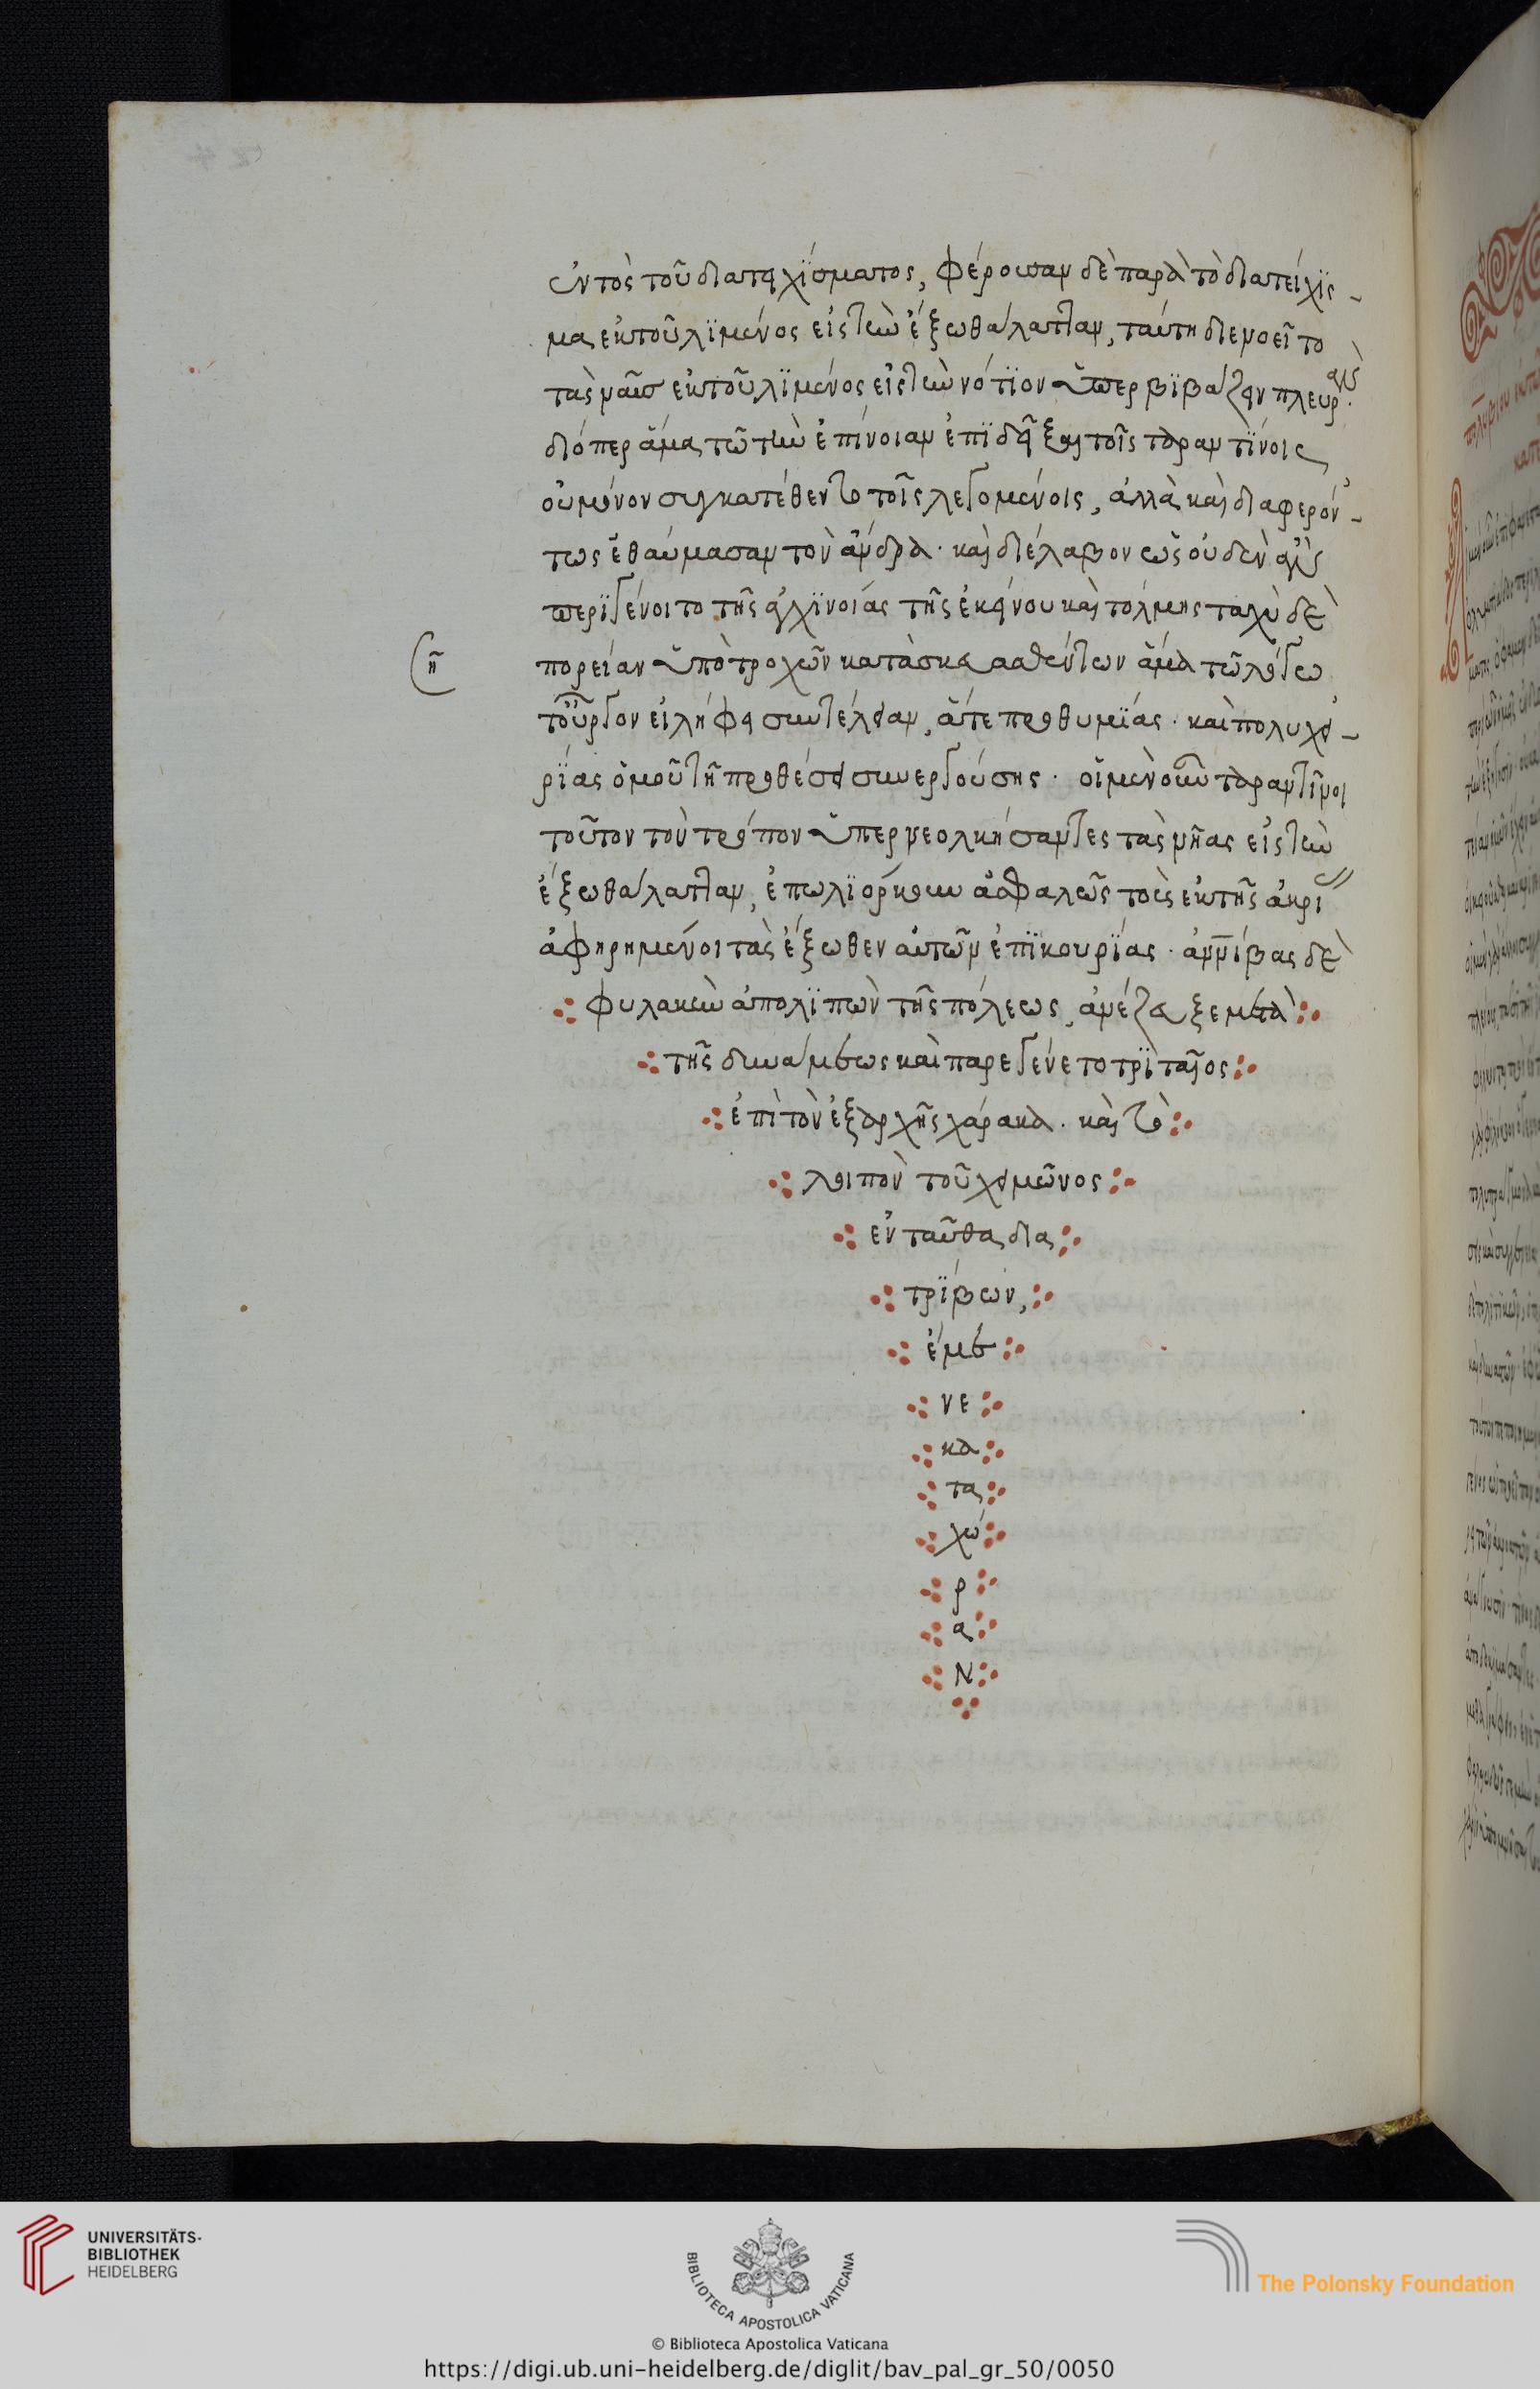 ἐντὸς τοῦ διατειχίσματος, φέρουσαν δὲ παρὰ τὸ διατείχις-
μα ἐκ τοῦ λϊμένος εἰς τὴν ἔξω θάλατταν, ταύτη διενοεῖτο
τὰς ναῦς ἐκ τοῦ λϊμένος εἰς τὴν νότϊον ὑπερβϊβάζειν πλευράν.
διόπερ ἅμα τῶ τὴν ἐπίνοιαν ἐπϊδεῖξαι τοῖς ταραντϊνοις
οὐ μόνον συγκατέθεντο τοῖς λεγομένοις, ἀλλὰ καὶ διαφερόν-
τως ἐθαύμασαν τὸν ἄνδρα· καὶ διέλαβον ὡς οὐδὲν ἂν
περϊγένοιτο τῆς ἀγχϊνοίας τῆς ἐκείνου καὶ τόλμης ταχὺ δὲ
πορείαν ὑπὸ τροχῶν κατασκευασθέντων ἅμα τῶ λόγω
τοὖργον εἰλήφει συντέλειαν, ἅτε προθυμϊας· καὶ πολυχει-
ρϊας ὁμοῦ τῆ προθέσει συνεργούσης· οἱ μὲν οὖν ταραντῖνοι
τοῦτον τὸν τρόπον ὑπερνεολκήσαντες τὰς νῆας εἰς τὴν
ἔξω θάλατταν, ἐπωλϊόρκουν ἀσφαλῶς τοὺς ἐκ τῆς ἄκρας
ἀφηρημένοι τὰς ἔξωθεν αὐτῶν ἐπϊκουρϊας· ἀννίβας δὲ
φυλακὴν ἀπολϊπὼν τῆς πόλεως, ἀνέζευξε μετὰ
τῆς δυνάμεως καὶ παρεγένετο τρϊταῖος
ἐπὶ τὸν ἐξ ἀρχῆς χάρακα· καὶ τὸ
λοιπὸν τοῦ χειμῶνος
ἐνταῦθα δια
τρϊβων,
ἔμε
νε
κα
τα
χώ
ρ
α
Ν
UNIVERSITÄTS-
BIBLIOTHEK
HEIDELBERG
BIBLIOTECA APOSTOLICA VATICANA
The Polonsky Foundation
© Biblioteca Apostolica Vaticana
https://digi.ub.uni-heidelberg.de/diglit/bav_pal_gr_50/0050